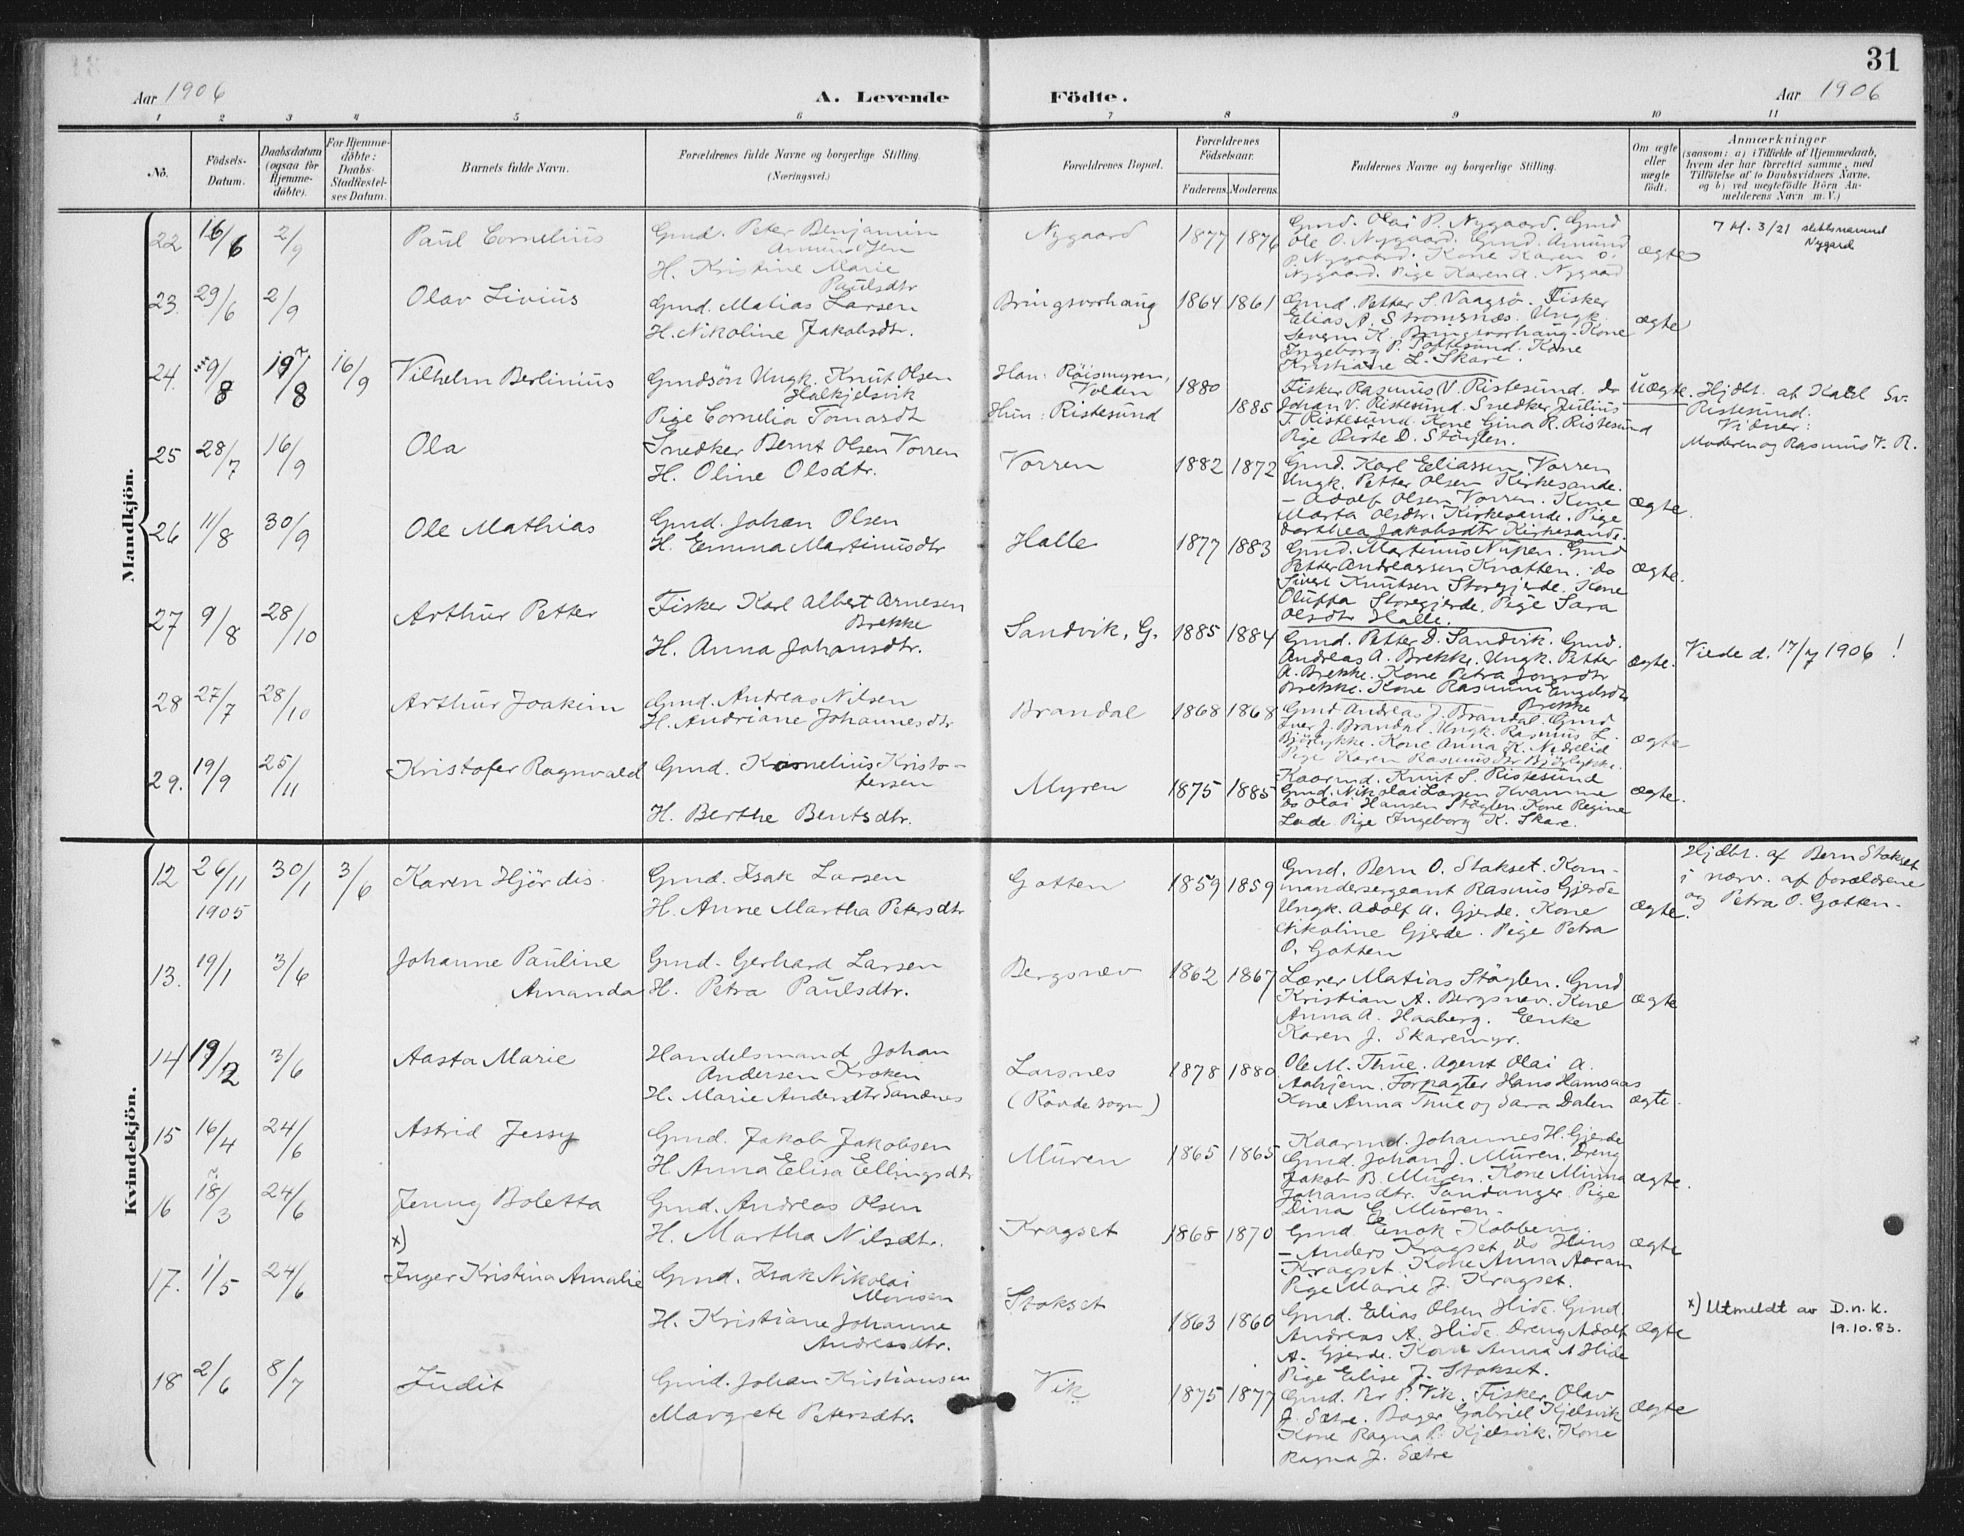 31
Aar 1906
A. Levende
Födte.
Aar 1906
1 2 3 4 5 6 7 8 9 10 11
No.
Födsels-
Datum.
Daabsdatum
(ogsaa for
Hjemme-
döbte).
For Hjemme-
döbte:
Daabs-
Stadfæstel-
ses Datum.
Barnets fulde Navn.
Forældrenes fulde Navne og borgerlige Stilling.
(Næringsvei.)
Forældrenes Bopæl.
Forældrenes
Födselsaar.
Faderens. Moderens.
Faddernes Navne og borgerlige Stilling.
Om ægte
eller
uægte
født.
Anmærkninger
(saasom: a) i Tilfælde af Hjemmedaab,
hvem der har forrettet samme, med
Tilföielse af to Daabsvidners Navne,
og b) ved uægtefödte Börn An-
melderens Navn m. V.)
Mandkjön.
22 16/6 2/9 Paul Cornelius
Gmd. Peter Benjamin
Amundsen
H. Kristine Marie
Paulsdtr
Nygaard 1877 1876
Gmd. Olai P. Nygaard. Gmd
Ole O. Nygaard. Gmd. Amund
P. Nygaard. Kone Karen O.
Nygaard. Pige Karen A. Nygaard
ægte
7 M. 3/21 slektsnavnet
Nygard
23. 29/6 2/9 Olav Livius
Gmd. Matias Larsen
H. Nikoline Jakobsdtr.
Bringsvorhaug 1864 1861
Gmd. Petter S. Vaagsö. Fisker
Elias A. Strömsnæs. Ungk.
Severin K. Bringsvorhaug. Kone
Ingeborg P. Tottesund. Kone
Kristiane L. Skare.
ægte
24. 9/8 19/8 16/9 Vilhelm Berlinius
Gmdsön Ungk. Knut Olsen
Halkjelsvik
Pige Cornelia Tomasdt
Han: Röismyren,
Volden
Hun: Ristesund
1880
1885
Fisker Rasmus V. Ristesund. do
Johan V. Ristesund. Snedker Julius
T. Ristesund. Kone Gina R. Ristesund
Pige Birte D. Stöylen.
uægte.
Hjdbt. af Karl Sv.
Ristesund.
Vidner:
Moderen og Rasmus V. R.
25 28/7 16/9 Ola
Snedker Bernt Olsen Vorren
H. Oline Olsdtr.
Vorren 1882 1872
Gmd. Karl Eliassen Vorren
Ungk. Petter Olsen Kirkesande.
– Adolf Olsen Vorren. Kone
Marta Olsdtr. Kirkesande. Pige
Dorthea Jakobsdtr Kirkesande.
ægte.
26 11/8 30/9 Ole Mathias
Gmd. Johan Olsen
H. Emma Martinusdtr
Halle 1877 1883
Gmd. Martinus Nupen. Gmd
Petter Andreassen Knotten. do
Sivert Knutsen Storegjerde. Kone
Oluffa Storegjerde. Pige Sara
Olsdtr Halle.
ægte.
27 9/8 28/10 Arthur Petter
Fisker Karl Albert Arnesen
Brekke
H. Anna Johansdtr.
Sandvik, G. 1885 1884
Gmd. Petter D. Sandvik. Gmd.
Andreas A. Brekke. Ungk. Petter
A. Brekke. Kone Petra Jonsdtr
Brekke. Kone Rasmine Engelsdtr
Brekke
ægte.
Viede d. 17/7 1906 !
28 27/7 28/10 Arthur Joakim
Gmd. Andreas Nilsen
H. Andriane Johannesdtr
Brandal 1868 1868
Gmd Andreas J. Brandal. Gmd
Iver J. Brandal. Ungk. Rasmus L.
Bjørlykke. Kone Anna K. Nedrelid
Pige Karen Rasmusdtr Bjørlykke.
ægte
29. 19/9 25/11 Kristofer Ragnvald
Gmd. Kornelius Kristo-
fersen
H. Berthe Bentsdtr.
Myren 1875 1885
Kaarmd. Knut S. Ristesund
Gmd. Nikolai Larsen Kvamme
do Olai Hansen Stöylen. Kone Regine
Lade. Pige Ingeborg K. Skare.
ægte.
Kvindekjön.
12 26/11 1905 30/1 3/6 Karen Hjördis
Gmd. Isak Larsen
H. Anne Martha Petersdtr
Gotten 1859 1859
Gmd. Bern O. Stokset. Kom-
mandersergeant Rasmus Gjerde
Ungk. Adolf A. Gjerde. Kone
Nikoline Gjerde. Pige Petra
O. Gotten
ægte.
Hjdbt. af Bern Stokset
i nærv. af forældrene
og Petra O. Gotten.
13. 19/1 3/6 Johanne Pauline
Amanda
Gmd. Gerhard Larsen
H. Petra Paulsdtr.
Bergsnev 1862 1867
Lærer Matias Stöylen. Gmd
Kristian A. Bergsnev. Kone
Anna A. Haaberg. Enke
Karen J. Skaremyr.
ægte
14 19/2 3/6 Aasta Marie
Handelsmand Johan
Andersen Kroken
H. Marie Andersdtr Sandnes
Larsnes
(Rövde sogn)
1878 1880
Ole M. Thue. Agent Olai A.
Aahjem. Forpagter Hans Hamsaas
Kone Anna Thue og Sara Dalen
ægte.
15 16/4 24/6 Astrid Jessy
Gmd. Jakob Jakobsen
H. Anna Elisa Ellingsdtr
Muren 1865 1865
Kaarmd. Johannes H. Gjerde
Gmd. Johan J. Muren. Dreng
Jakob B. Muren. Kone Minna
Johansdtr. Sandanger. Pige
Dina E. Muren.
ægte.
16 18/3 24/6 Jenny Boletta
Gmd. Andreas Olsen
H. Martha Nilsdtr.
Kragset 1868 1870
Gmd. Enok Kobbevig.
– Anders Kragset. do Hans
Kragset. Kone Anna Aaram
Pige Marie J. Kragset.
ægte
x)
17. 1/5 24/6 Inger Kristina Amalie
Gmd. Isak Nikolai
Monsen
H. Kristiane Johanne
Andreasdtr.
Stokset 1863 1860
Gmd. Elias Olsen Hide. Gmd.
Andreas A. Hide. Dreng Adolf
A. Gjerde. Kone Anna A Hide
Pige Elise J. Stokset.
ægte
x) Utmeldt av D.n.k.
19.10.83.
18 2/6 8/7 Judit
Gmd. Johan Kristiansen
Margrete Petersdtr.
Vik 1875 1877
Gmd. Per P. Vik. Fisker Olav
J. Sætre. Bager Gabriel Kjelsvik
Kone Ragna P. Kjelsvik. Kone
Ragna J. Sætre
ægte